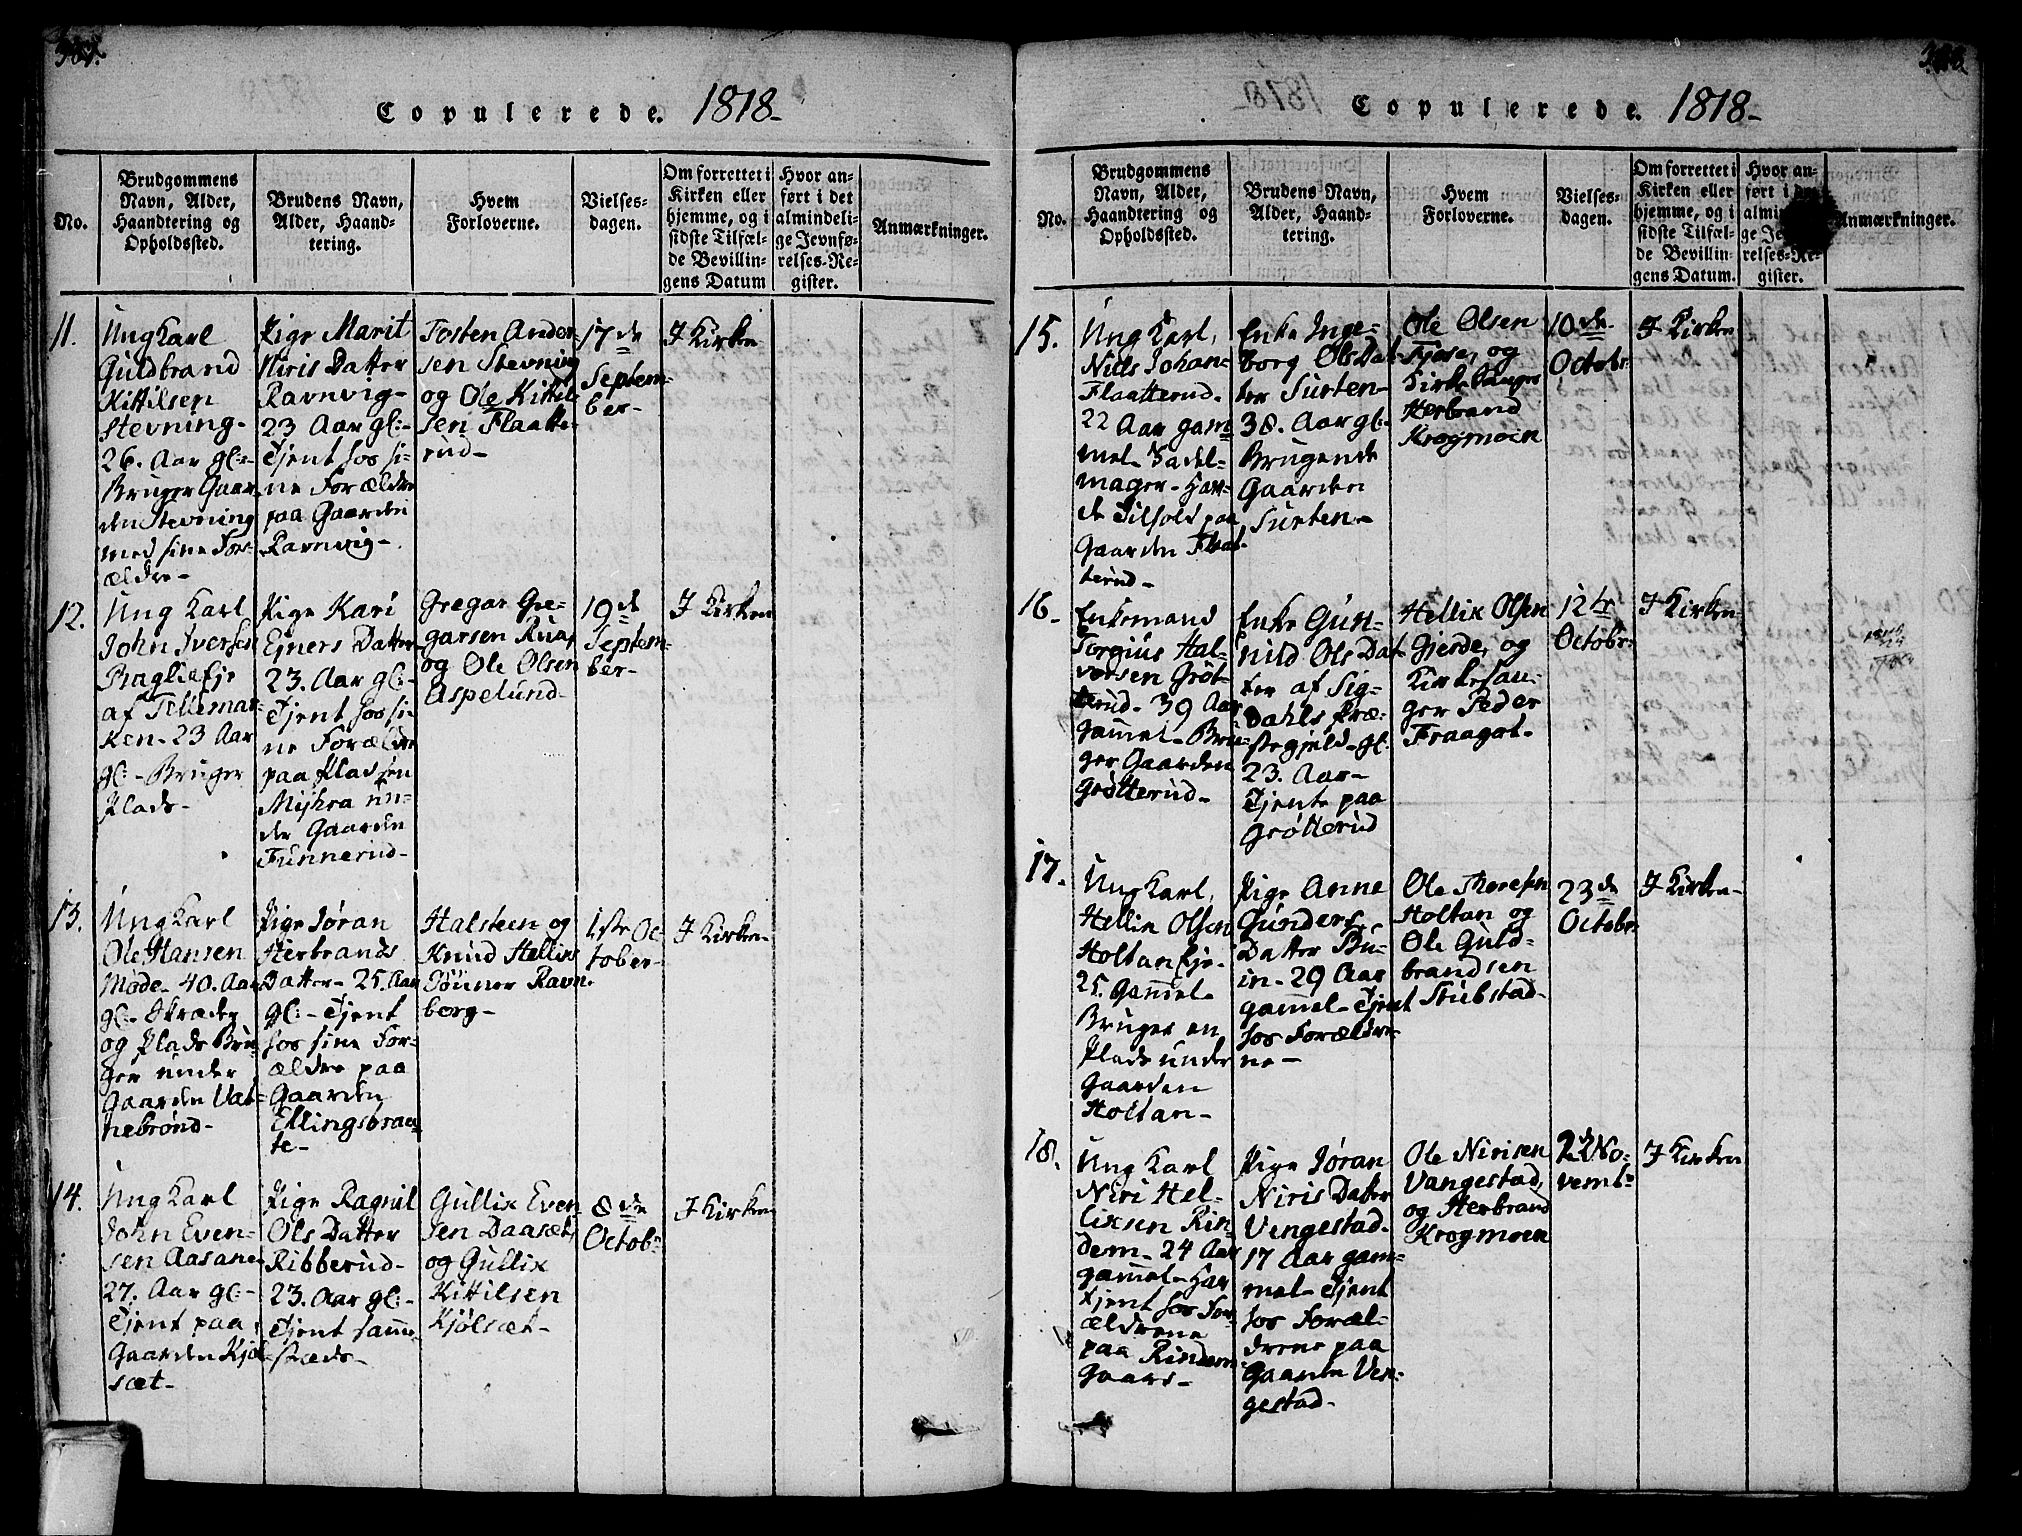 Copulerede. 1818-
No.
Brudgommens
Navn, Alder,
Haandtering og
Opholdssted.
Brudens Navn,
Alder, Haand-
tering.
Hvem
Forloverne.
Vielses-
dagen.
Om forrettet i
Kirken eller
hjemme, og i
sidste Tilfæl-
de Bevillin-
gens Datum
Hvor an-
ført i det
almindeli-
ge Jevnfø-
relses-Re-
gister.
Anmærkninger.
11.
Ung Karl
Guldbrand
Kittilsen
Stevning-
26. Aar gl:-
Bruger Gaar-
den Stevning
med sine For-
ældre-
Pige Marit
Niris Datter
Ravnvig-
23 Aar gl:-
Tjent hos si-
ne Forældre
paa Gaarden
Ravnvig-
Tosten Ander
sen Stevning
og Ole Kittil
sen Flaatte-
rud-
17de
Septem-
ber-
I Kirken
12.
Ung Karl
John Iversen
af Tellemar-
ken- 23 Aar
gl:- Bruger
Plads-
Pige Kari
Ejners Datter
23. Aar gl:-
Tjent hos si-
ne Forældre
paa Pladsen
Myhra un-
der Gaarden
Funnerud-
Gregar Gre-
garsen Rua,
og Ole Olsen
Aspelund-
19de
Septem-
ber-
I Kirken
13.
Ung Karl
Ole Hansen
Møde- 40. Aar
gl:- Skræder
og Plads Bru-
ger under
Gaarden Vat-
nebrønd-
Pige Jøran
Herbrands
Datter- 25. Aar
gl:- Tjent
hos sine For-
ældre paa
Gaarden
Ellingsbraa-
te-
Halsteen og
Knud Hellix
Sönner Ravn-
borg-
1ste Oc-
tober-
I Kirken-
14.
Ung Karl
John Even-
sen Aasane-
27. Aar gl:-
Tjent paa
Gaarden Kjøl-
sæt-
Pige Ragnil
Ols Datter
Ribberud-
23. Aar gl:-
Tjent samme-
stæds-
Gullix Even
sen Daasæt,
og Gullix
Kittilsen
Kjølsæt-
8de
Octobr
I Kirken
Copulerede. 1818-
No.
Brudgommens
Navn, Alder,
Haandtering og
Opholdssted.
Brudens Navn,
Alder, Haand-
tering.
Hvem
Forloverne.
Vielses-
dagen.
Om forrettet i
Kirken eller
hjemme, og i
sidste Tilfæl-
de Bevillin-
gens Datum.
Hvor an-
ført i
almind
ge Je
relses-Re-
gister.
Anmærkninger.
15.
Ung Karl,
Niels Johan-
Flaatterud-
22 Aar gam
mel- Sadel-
mager- Har
de Tilhold paa
Gaarden Flaat-
terud-
Enke Inge-
borg Ols Dat-
ter Surten-
38. Aar gl:-
Brugende
Gaarden
Surten-
Ole Olsen
Fjose, og
Kirkesanger
Herbrand
Krogmoen
10de
Octobr:
I Kirken
16.
Enkemand
Torgius Hal-
vorsen Grøt-
terud- 39 Aar
gammel- Bru-
ger Gaarden
Grøtterud-
Enke Gun-
nild Ols Dat-
ter af Sig-
dahls Præ-
stegjeld- gl:
23. Aar-
Tjente paa
Grøtterud
Hellix Olsen
Gjerde, og
Kirkesan-
ger Peder
Fraagot-
12te
Octobr:
I Kirken
17.
Ung Karl,
Hellix Olsen
Holtan Eje-
25. Gammel-
Bruger en
Plads under
Gaarden
Holtan-
Pige Anne
Gunders
Datter Bu-
in- 29 Aar
gammel- Tjent
hos Forældre-
ne-
Ole Thoresen
Holtan og
Ole Guld-
brandsen
Stubstad-
23de
Octobr:
I Kirken-
18.
Ung Karl
Niri Hel-
lixsen Rin-
dem- 24 Aar
gammel- Har
tjent hos For-
ældrene
paa Rindem
Gaard-
Pige Jøran
Niris Datter
Vengestad-
17 Aar gam-
mel- Tjent
hos Foræl-
drene paa
Gaarden Ven-
gestad-
Ole Nirisen
Vangestad,
og Herbrand
Krogmoen
2d No-
vembr
I Kirken